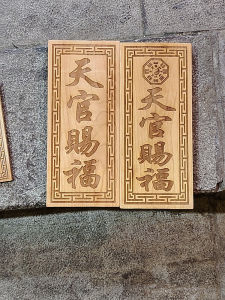 天官賜福
天官賜福